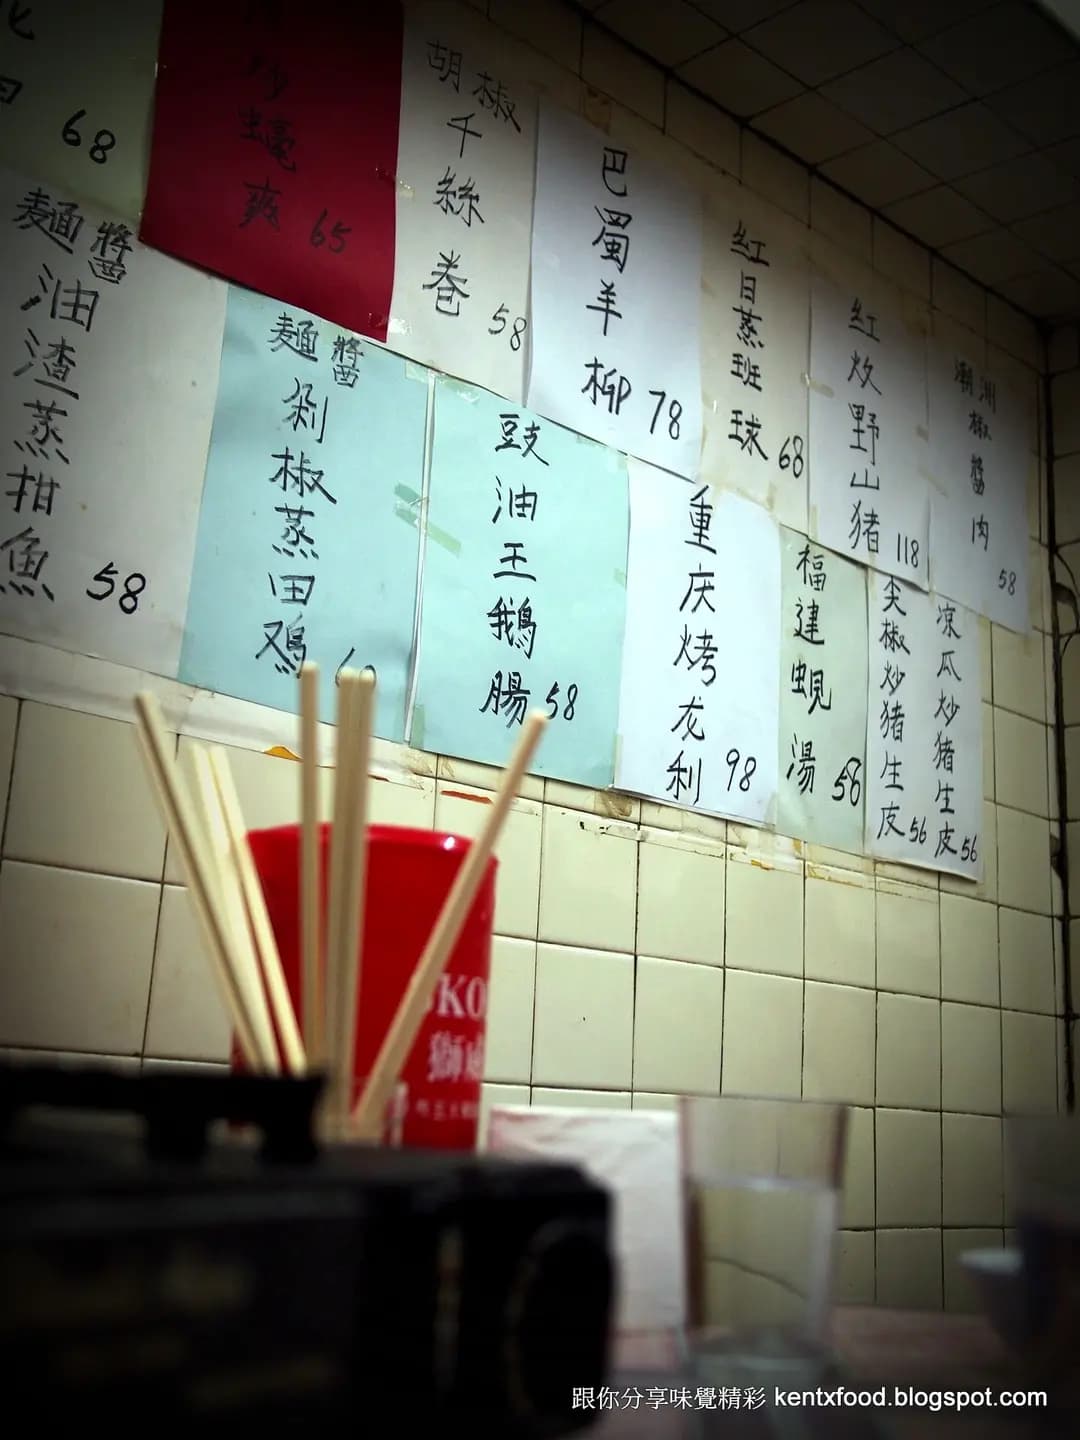 68
炒
蠔
爽 65
胡椒
千
絲
卷 58
巴
蜀
羊
柳 78
紅
日
蒸
班
球 68
紅
炆
野
山
猪 118
潮州
椒
醬
肉
58
麵醬
油
渣
蒸
魚 58
麵醬
剁
椒
蒸
田
鸡
豉
油
王
鵝
腸 58
重
庆
烤
龙
利 98
福
建
蜆
湯 56
尖
椒
炒
猪
生
皮 56
凉
瓜
炒
猪
生
皮 56
獅威
跟你分享味覺精彩 kentxfood.blogspot.com